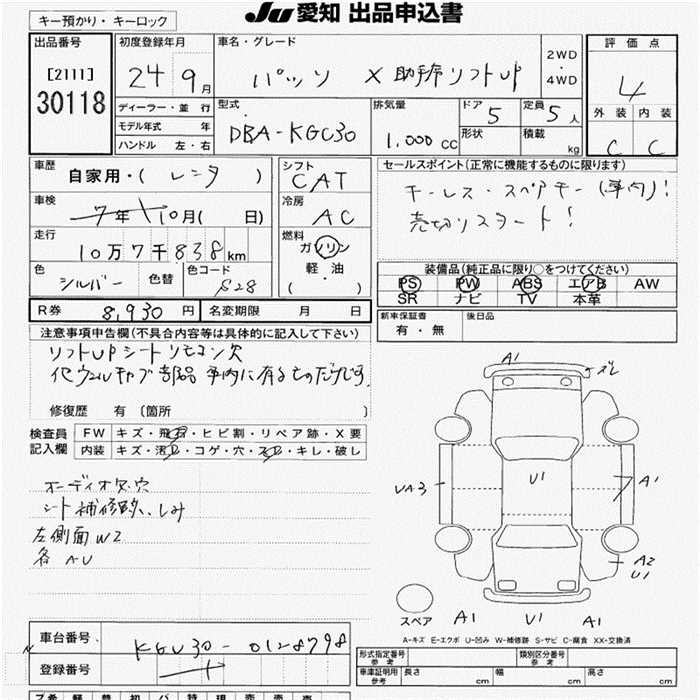 JU 愛知 出品申込書
キー預かり・キーロック
出品番号
[2111]
30118
初度登録年月
24 9月
車名・グレード
パッソ X 助手席リフトUP
2WD
・
4WD
評価点
4
外装 内装
C C
ディーラー・並 行
モデル年式 年
ハンドル 左・右
型式
DBA-KGC30
排気量
1.000 CC
ドア
5
形状
定員
5 人
積載
kg
車歴
自家用・( レンタ )
車検
7年 10月( 日)
走行
10万7千838km
色
シルバー
色替
色コード
S28
シフト
CAT
冷房
AC
燃料
ガソリン
軽・油
( )
セールスポイント(正常に機能するものに限ります)
キーレス・スペアキー(車内)!
売切りスタート!
装備品(純正品に限り○をつけてください)
PS PW ABS エアB AW
SR ナビ TV 本革
R券 8,930 円
名変期限 月 日
新車保証書
有・無
後日品
注意事項申告欄(不具合内容等は具体的に記入して下さい)
リフトUPシートリモコン欠
他ウェルキャブ部品 車内に有るものだけです。
修復歴 有 〔箇所 〕
検査員
記入欄
FW キズ・飛石・ヒビ割・リペア跡・X要
内装 キズ・汚れ・コゲ・穴・スレ・キレ・破し
オーディオ欠、穴
シート補修跡、しみ
左側面W2
各AU
A1
ズレ
U1
UA3
A1
A2
U1
スペア
A1 U1 A1
A-キズ E-エクボ U-凹み W-補修跡 S-サビ C-腐食 XX-交換済
車台番号
KGC30-0128798
登録番号
形式指定番号
参考
類別区分番号
参考
車庫証明用
参考
長さ cm 幅 cm 高さ cm